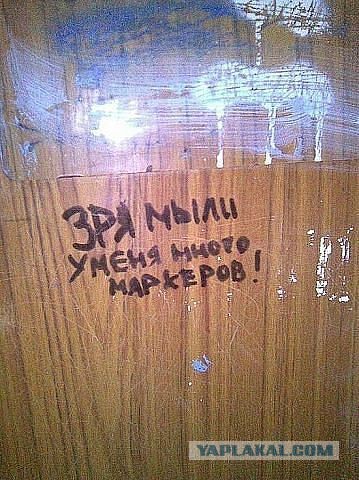 ЗРЯ МЫЛИ
У МЕНЯ МНОГО
МАРКЕРОВ!
YAPLAKAL.COM